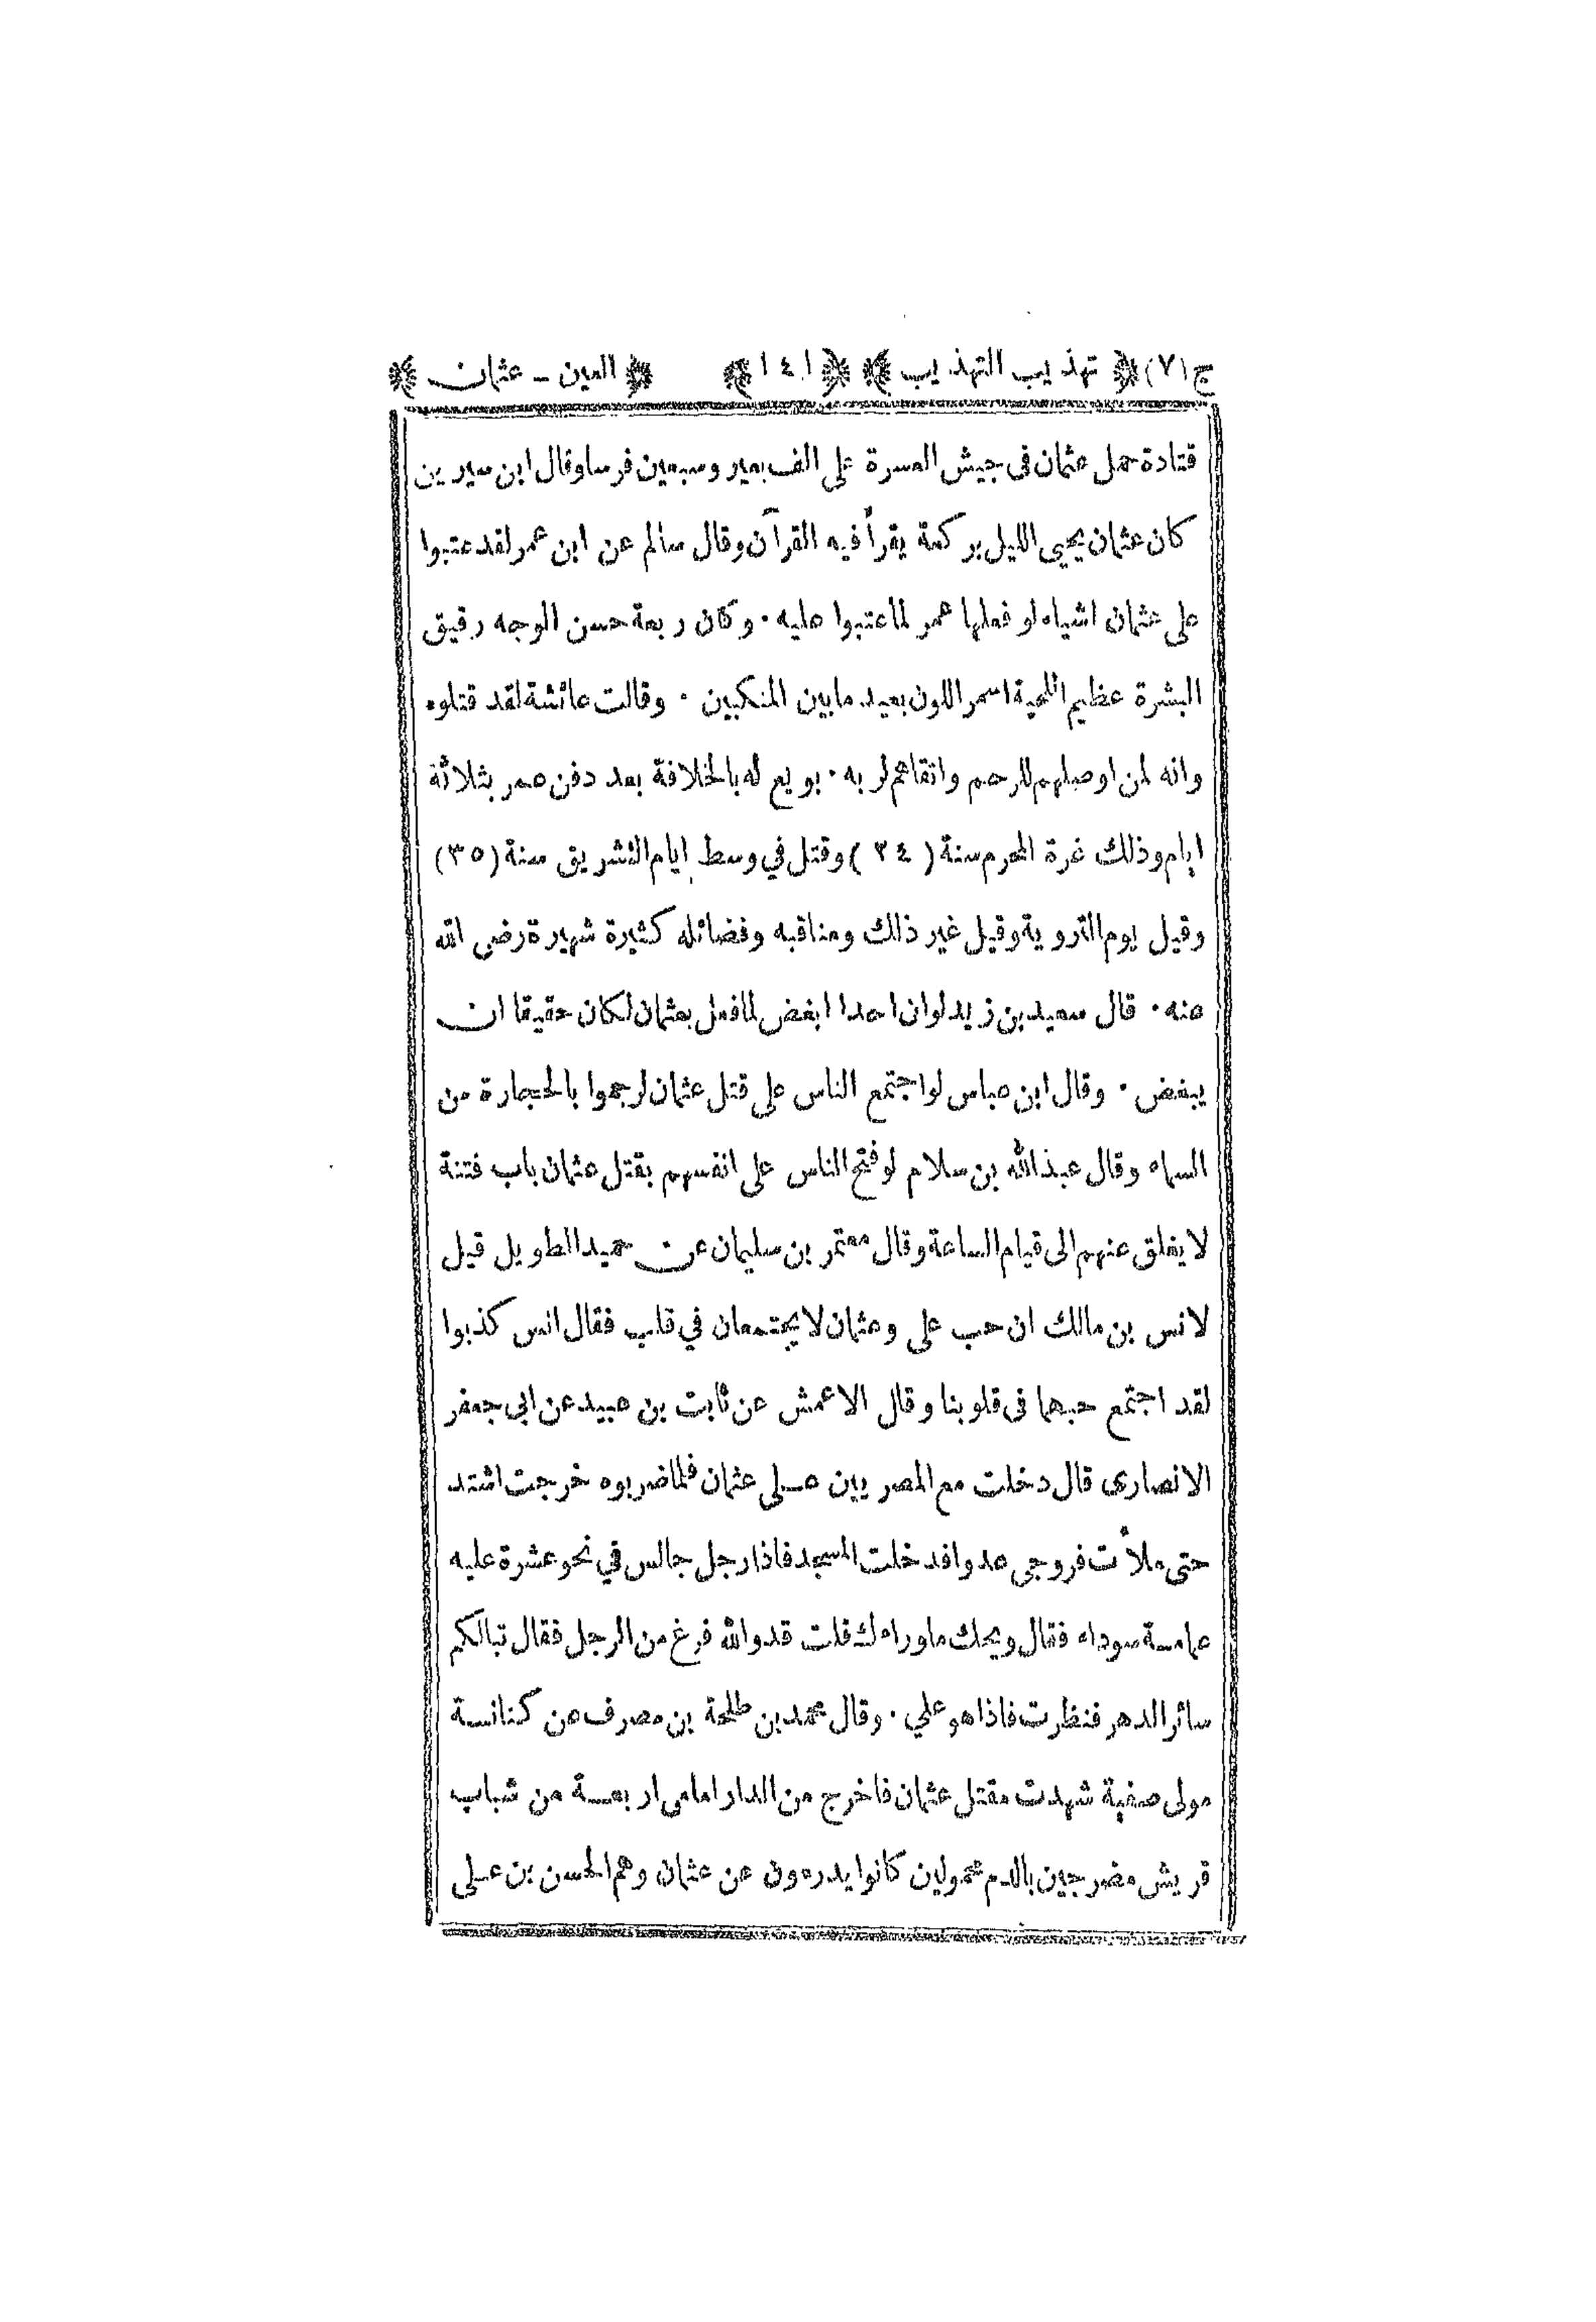 ج (٧) ﴿ تهذيب التهذيب ﴾ ﴿ ١٤١ ﴾ ﴿ العين - عثمان ﴾
قتادة حمل عثمان فى جيش العسرة على الف بعير وسبعين فرسا وقال ابن سيرين
كان عثمان يحيى الليل بركعة يقرأ فيه القرآن وقال سالم عن ابن عمر لقد عتبوا
على عثمان اشياء لو فعلها عمر لما عتبوا عليه . وكان ربعة حسن الوجه رقيق
البشرة عظيم اللحية اسمر اللون بعيد مابين المنكبين . وقالت عائشة لقد قتلوه
وانه لمن اوصلهم للرحم واتقاهم لربه . بويع له بالخلافة بعد دفن عمر بثلاثة
ايام وذلك غرة المحرم سنة ( ٢٤ ) وقتل في وسط ايام التشريق سنة (٣٥)
وقيل يوم التروية وقيل غير ذلك ومناقبه وفضائله كثيرة شهيرة رضى الله
عنه . قال سعيد بن زيد لوان احدا ابغض لما فعل بعثمان لكان حقيقا ان
يبغض . وقال ابن عباس لو اجتمع الناس على قتل عثمان لرجموا بالحجارة من
السماء وقال عبد الله بن سلام لو فتح الناس على انفسهم بقتل عثمان باب فتنة
لا يغلق عنهم الى قيام الساعة وقال معتمر بن سليمان عن حميد الطويل قيل
لانس بن مالك ان حب على وعثمان لا يجتمعان في قلب فقال انس كذبوا
لقد اجتمع حبهما فى قلوبنا وقال الاعمش عن ثابت بن عبيد عن ابى جعفر
الانصارى قال دخلت مع المصريين على عثمان فلما ضربوه خرجت اشتد
حتى ملأت فروجى عدوا فدخلت المسجد فاذا رجل جالس في نحو عشرة عليه
عمامة سوداء فقال ويحك ما وراءك قلت قد والله فرغ من الرجل فقال تبا لكم
سائر الدهر فنظرت فاذا هو علي . وقال محمد بن طلحة بن مصرف عن كنانة
مولى صفية شهدت مقتل عثمان فاخرج من الدار امامى اربعة من شباب
قريش مضرجين بالدم محمولين كانوا يدرءون عن عثمان وهم الحسن بن على